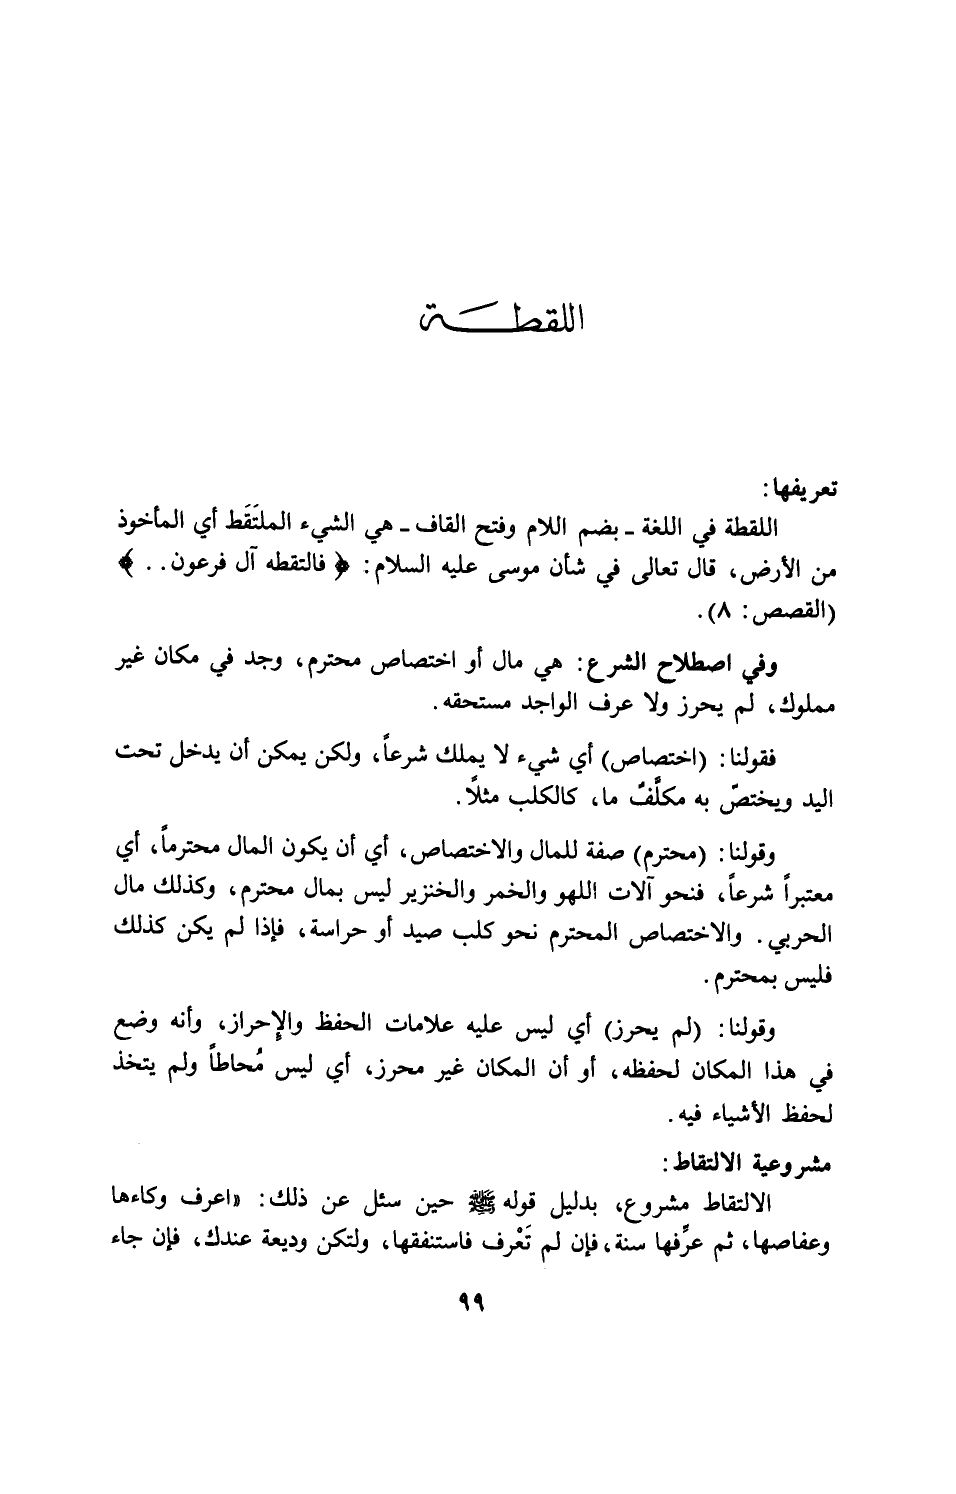 اللقطـــة
تعريفها:
اللقطة في اللغة ـ بضم اللام وفتح القاف ـ هي الشيء الملتَقَط أي المأخوذ
من الأرض، قال تعالى في شأن موسى عليه السلام: ﴿ فالتقطه آل فرعون . . ﴾
(القصص: ٨).
وفي اصطلاح الشرع: هي مال أو اختصاص محترم، وجد في مكان غير
مملوك، لم يحرز ولا عرف الواجد مستحقه.
فقولنا: (اختصاص) أي شيء لا يملك شرعاً، ولكن يمكن أن يدخل تحت
اليد ويختصّ به مكلَّفٌ ما، كالكلب مثلًا.
وقولنا: (محترم) صفة للمال والاختصاص، أي أن يكون المال محترماً، أي
معتبراً شرعاً، فنحو آلات اللهو والخمر والخنزير ليس بمال محترم، وكذلك مال
الحربي. والاختصاص المحترم نحو كلب صيد أو حراسة، فإذا لم يكن كذلك
فليس بمحترم.
وقولنا: (لم يحرز) أي ليس عليه علامات الحفظ والإحراز، وأنه وضع
في هذا المكان لحفظه، أو أن المكان غير محرز، أي ليس مُحاطاً ولم يتخذ
لحفظ الأشياء فيه.
مشروعية الالتقاط:
الالتقاط مشروع، بدليل قوله ﷺ حين سئل عن ذلك: «اعرف وكاءها
وعفاصها، ثم عرِّفها سنة، فإن لم تَعْرف فاستنفقها، ولتكن وديعة عندك، فإن جاء
٩٩